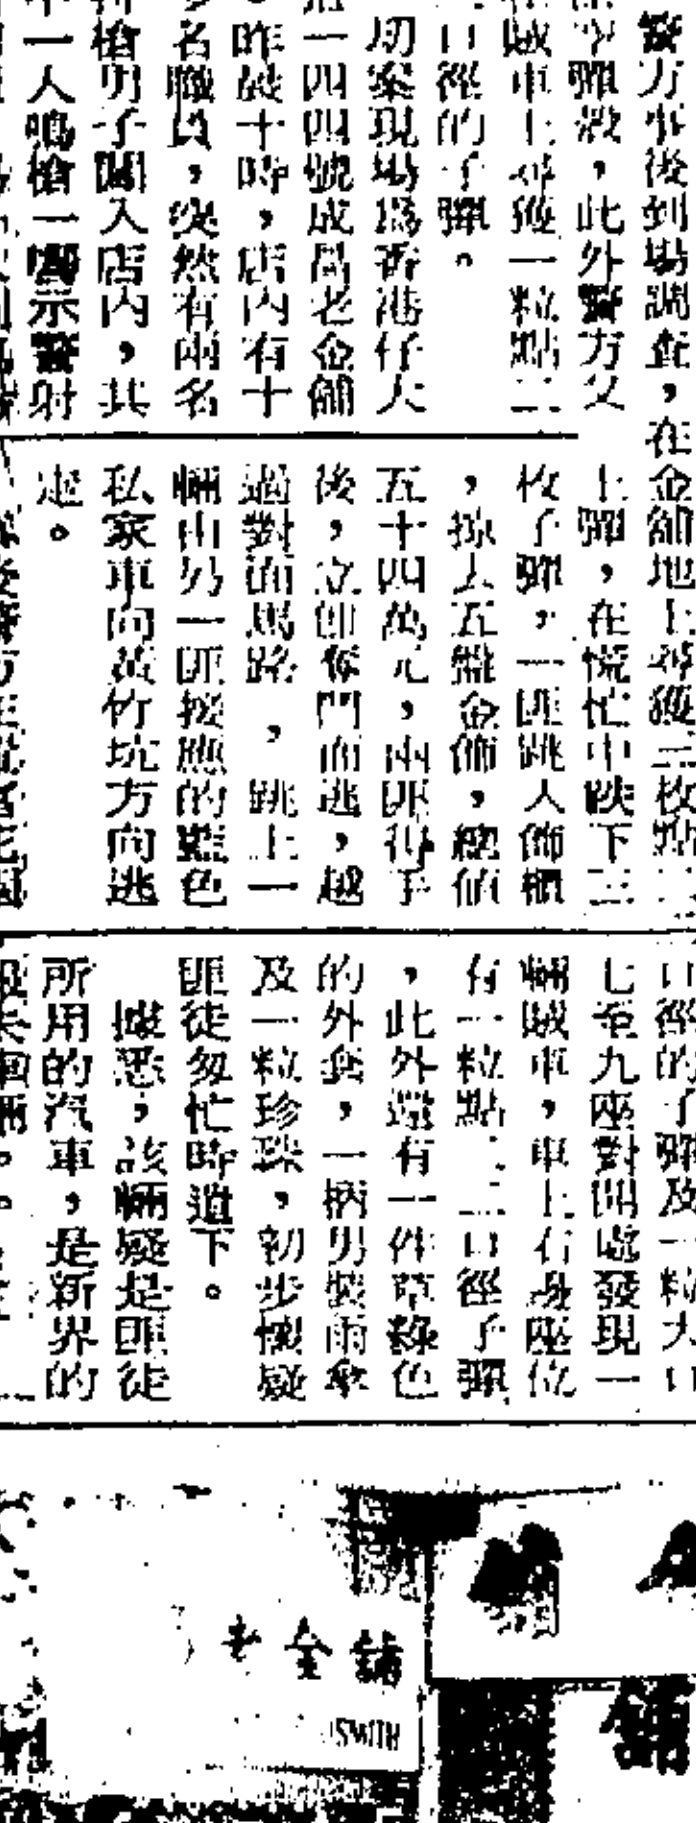 警方事後到場調查，在金舖地上尋獲三枚點二
空彈殼，此外警方又
在賊車上尋獲一粒點二
口徑的子彈。
刧案現場爲香港仔大
道一四四號成昌老金舖
。昨晨十時，店內有十
多名職員，突然有兩名
持槍男子闖入店內，其
中一人鳴槍一響示警射
上彈，在慌忙中跌下三
枚子彈，一匪跳入飾櫃
，掠去五盤金飾，總值
五十四萬元，兩匪得手
後，立卽奪門而逃，越
過對面馬路，跳上一
輛由另一匪接應的藍色
私家車向黃竹坑方向逃
走。
口徑的子彈及一粒大口
七至九座對開處發現一
輛賊車，車上右邊座位
有一粒點二二口徑子彈
，此外還有一件草綠色
的外套，一柄男裝雨傘
及一粒珍珠，初步懷疑
匪徒匆忙時遺下。
據悉，該輛疑是匪徒
所用的汽車，是新界的
報失車輛。
老金舖
SMITH
金
舖